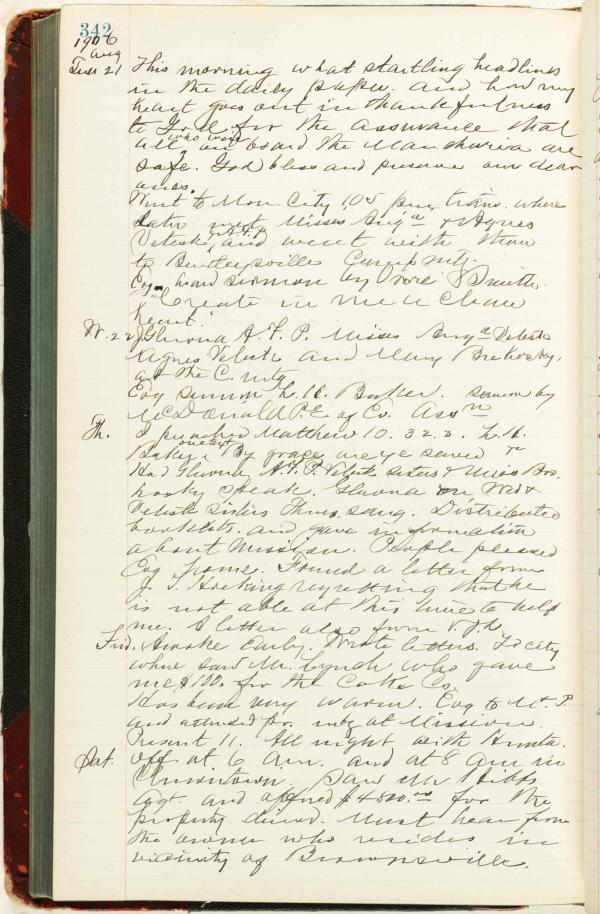 342
1906
Aug
Tues 21 This morning what startling headlines
in the daily paper. and how my
heart goes out in thankfulness
to God for the assurance that
all who were on board the Manchuria are
safe. God bless and preserve our dear
ones.
Went to Mon. City 1,05 p.m. train. where
later met Misses Aug'a & Agnes
and went with them
to Bentleysville Camp mtg.
Evg. heard sermon by Smith.
"Create in me a clean
heart."
W. 22 A. F. P. Misses
Agnes and Mary
at the C. mtg
Evg sermon L. H. Baker. sermon by
McDonald P.E. of Co. Ass'n
Th. I preached Matthew 10. 32. L. H.
Baker on text By grace are ye saved
Had A. F. P. sisters & Miss
speak. on Wed &
sisters Thurs. sang. Distributed
booklets. and gave information
about Mission. People pleased
Evg home. Found a letter from
J. S. Hocking regretting that he
is not able at this time to help
me. A letter also from
Frid. Awoke Early. Wrote letters. To city
where saw Mr. Lynch who gave
me $100. for the Coke Co.
Has been very warm. Evg to Mt. P.
and attended pr. mtg at Mission.
Present 11. All night with
Sat. off at 6 am. and at 8 am in
Uniontown. Saw Mr Hibbs
agt. and offered for the
property desired. Must hear from
the owner who resides in
vicinity of Brownsville.